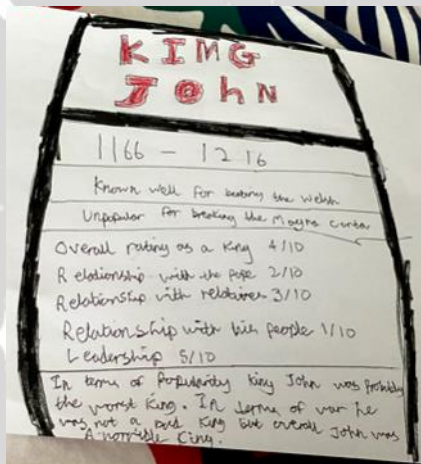 KIMG
JOHN
1166 - 1216
Known well for beating the Welsh
Unpopular for breaking the Magna Carta
Overall rating as a king 4/10
Relationship with the Pope 2/10
Relationship with relatives 3/10
Relationship with his people 1/10
Leadership 5/10
In terms of Popularity King John was Probably
the worst King. In terms of war he
was not a bad King but overall John was
A horrible King.